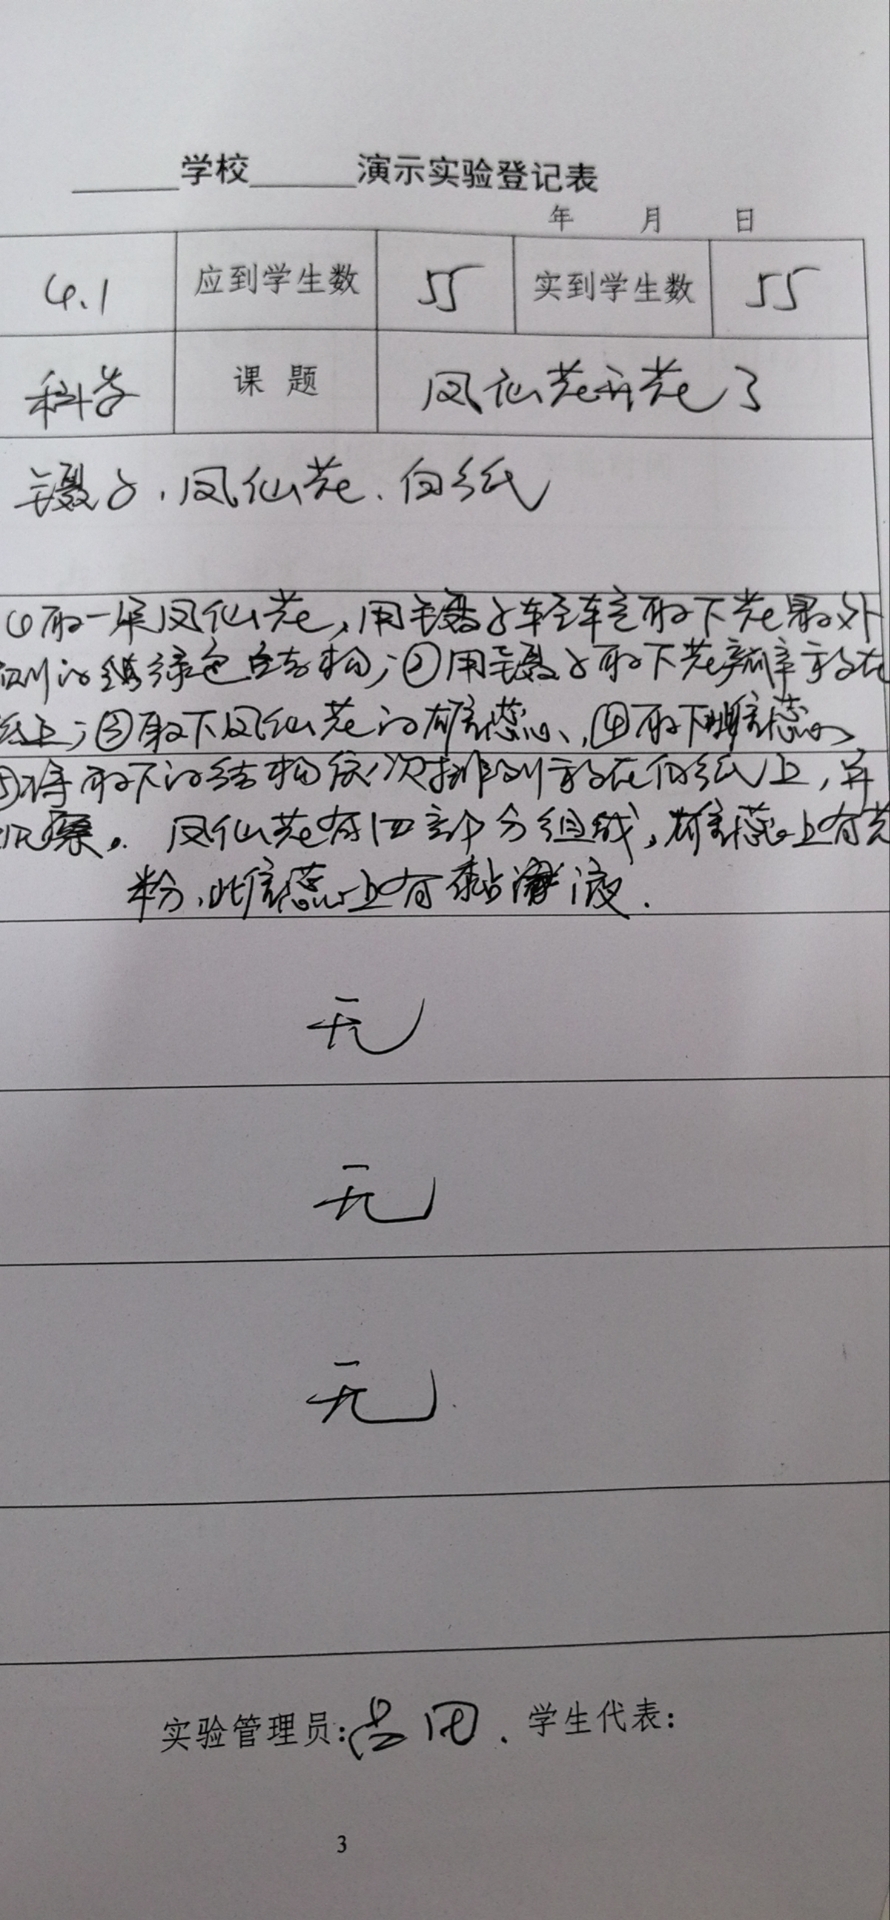 ______学校______演示实验登记表
年 月 日
4.1 应到学生数 55 实到学生数 55
科学 课 题 凤仙花开花了
镊子、凤仙花、白纸
①取一朵凤仙花，用镊子轻轻取下花最外
侧的绿色结构；②用镊子取下花瓣放在
纸上；③取下凤仙花的雄蕊、④取下雌蕊
⑤将取下的结构依次排列放在白纸上，并
观察。凤仙花有四部分组成，雄蕊上有花
粉、雌蕊上有黏液.
无
无
无
实验管理员: 学生代表:
3